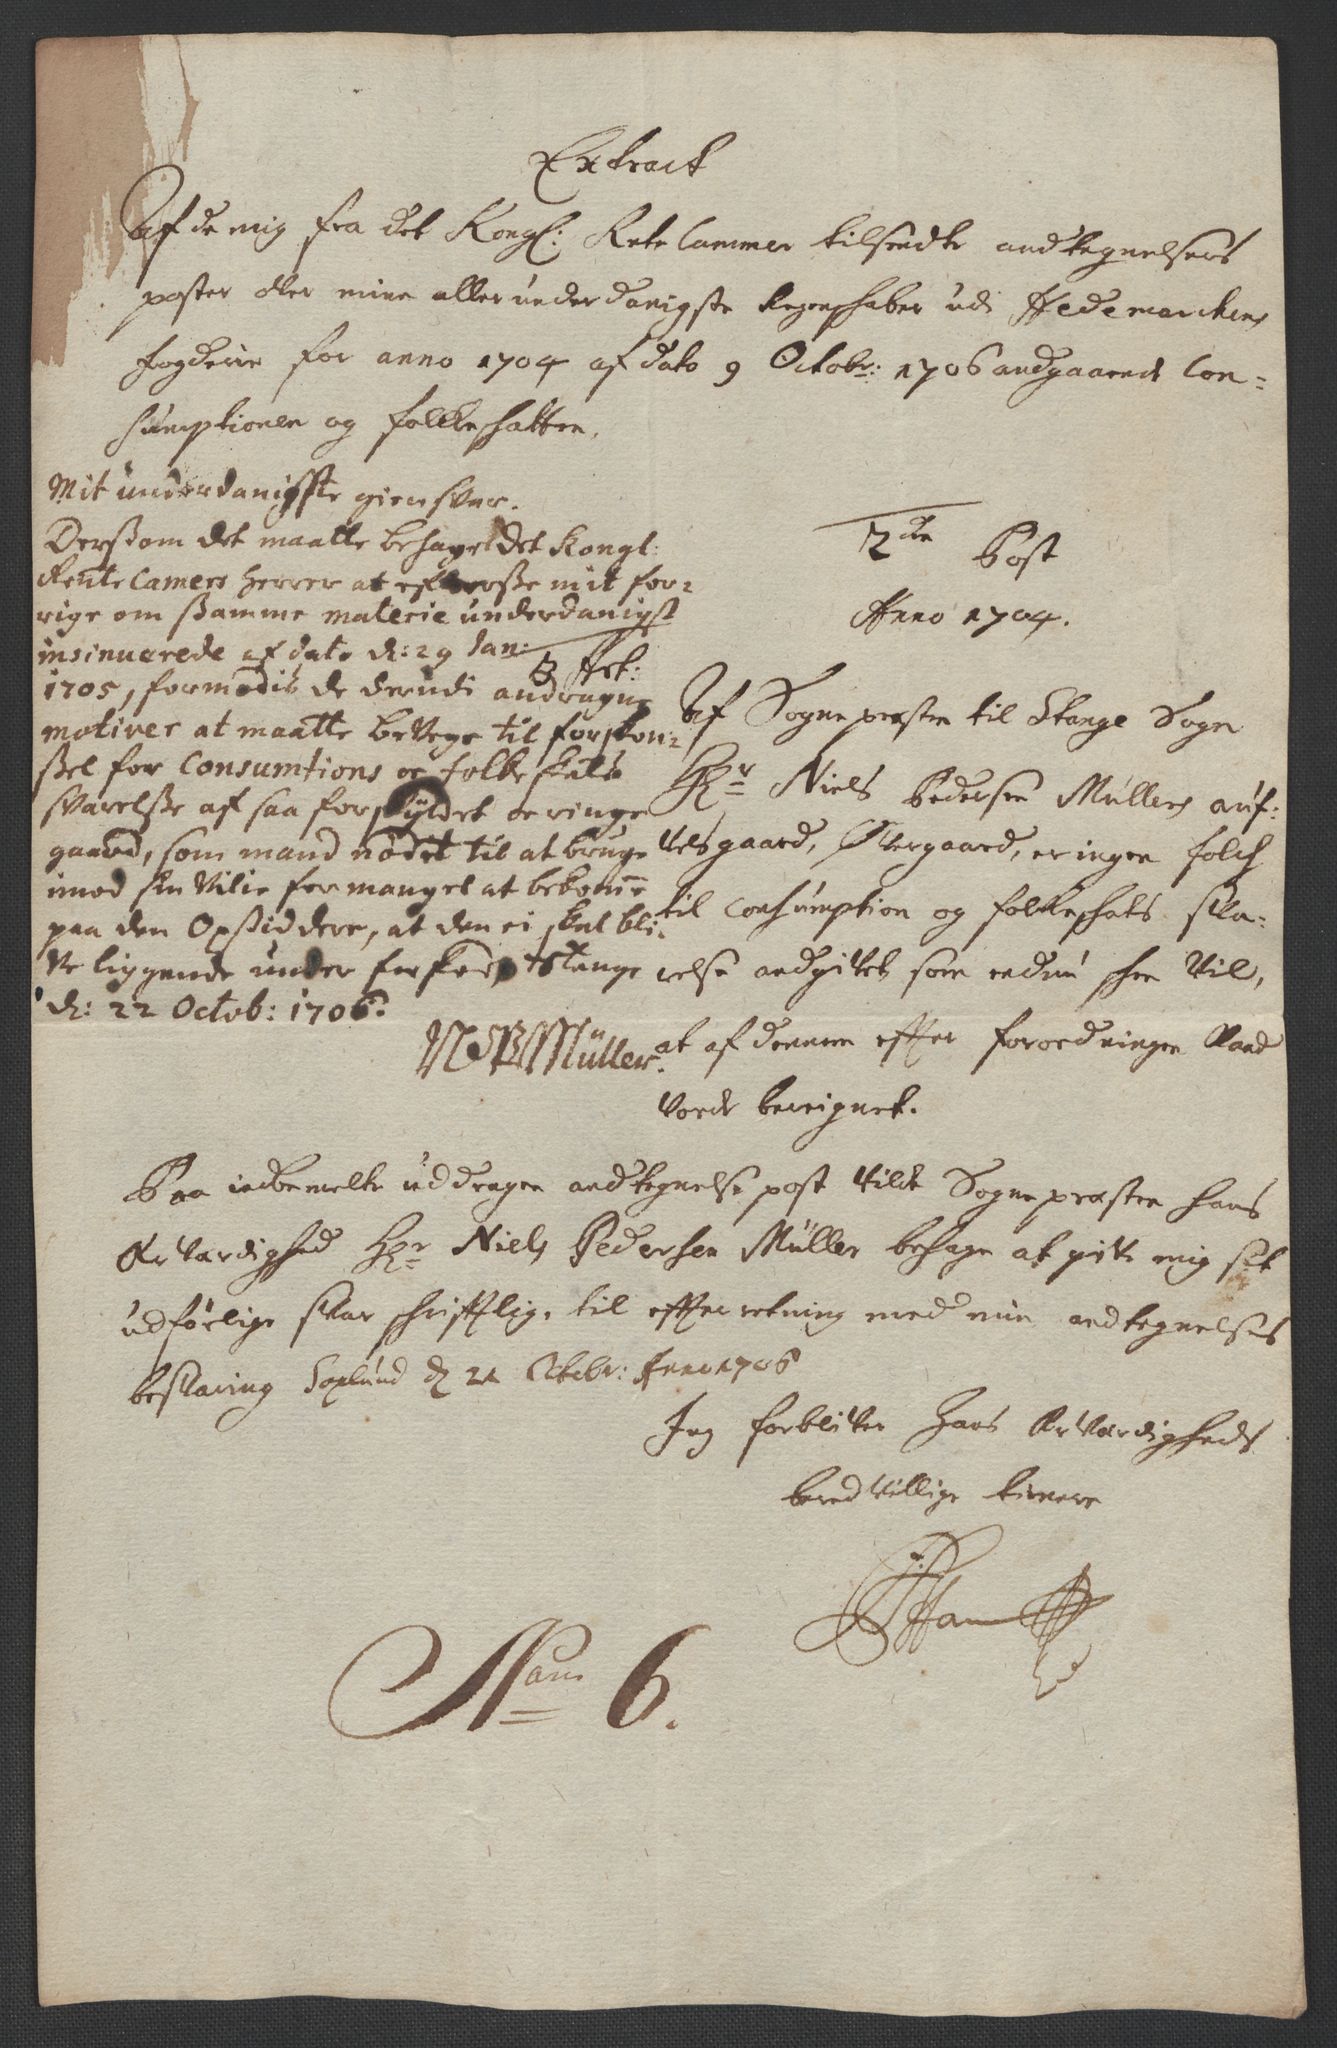 Extract
Af de mig fra det Kongl: Rente Cammer tilsendte andtegnelsers
poster over mine allerunderdanigste Regenschaber udi Hedemarchens
fogderie for anno 1704 af dato 9 Octobr: 1706 andgaaende Con=
sumptionen og folkeskatten.
Mit underdanigste giensvar.
Dersom det maatte behage det Kongl:
Rente Camers Herrer at efterse mit for=
rige om samme materie underdanigst
insinuerede af dato d: 29 Jan:
1705, formodis de derudi andragne
motiver at maatte bevege til forskon=
sel for Consumtions oc folkeskats
svarelse af saa forskyldet oc ringe
gaard, som mand nødet til at bruge
imod sin Vilie for mangel at bekomme
paa den Opsiddere, at den ei skal bli=
ve liggende under Stange
d: 22 Octob: 1706.
N P Müller.
2de Post
Anno 1704.
Af Sognepresten til Stange Sogn
Hr Niels Pedersen Müllers auf=
velsgaard, Øvergaard, er ingen folch
til Consumption og folkeskats sva=
relse andgivet som endnu skee Vil,
at af dennem effter forordningen kand
vorde bereignet.
Paa indbemelte uddragen andtegnelse post vilde Sognepresten hans
Ærværdighed Hr Niels Pedersen Müller behage at give mig sit
udførlige svar skrifftlig, til effterretning med min andtegnelses
besvaring d 21 Octobr: Anno 1706
Jeg forbliver Hans Ærværdigheds
beredvillige tienere
Num 6.